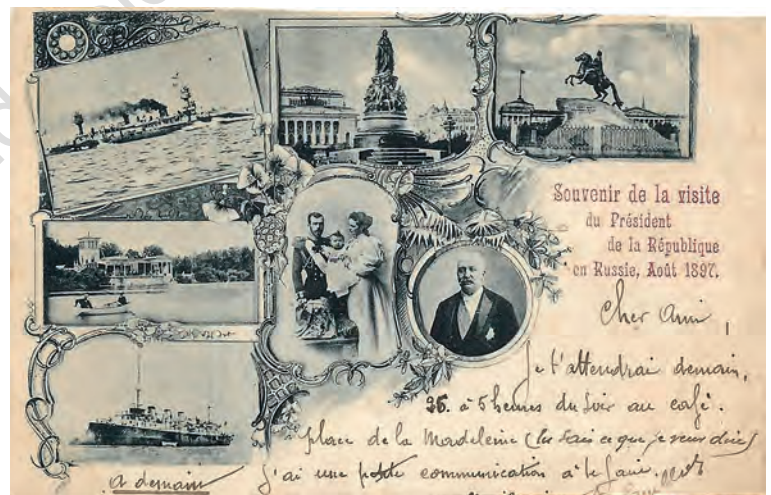 Souvenir de la visite
du Président
de la République
en Russie, Août 1897.
Cher Ami,
Je t'attendrai demain,
à 5 heures du soir au café.
place de la Madeleine (tu sais ce que je veux dire)
J'ai une petite communication à te faire.
A demain